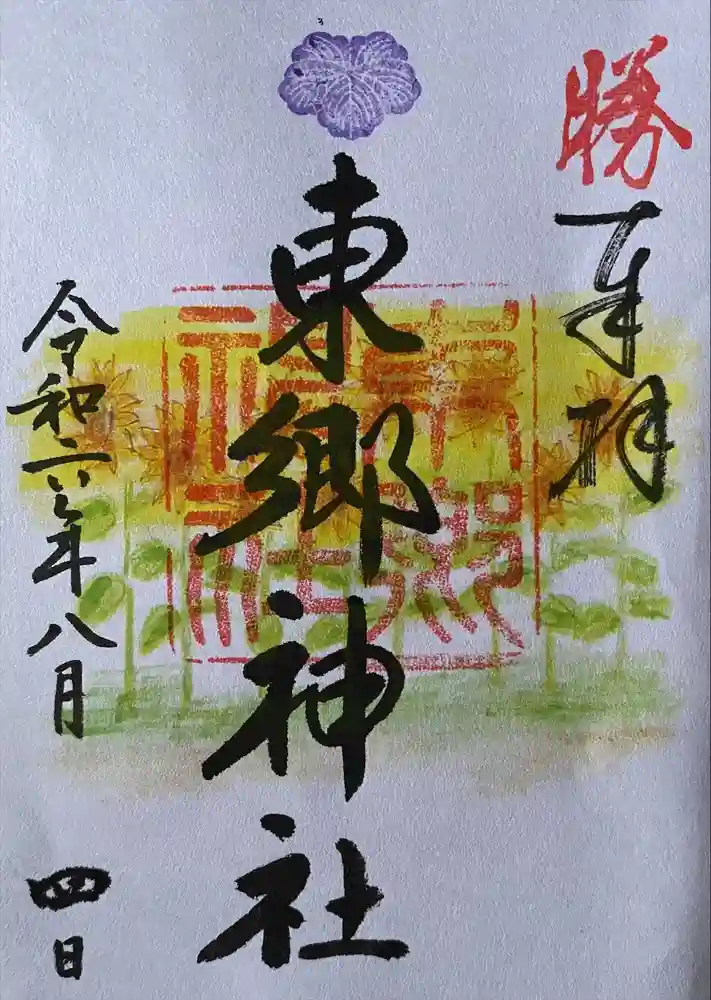 勝
奉拝
東郷神社
東郷
神社
令和六年八月
四日